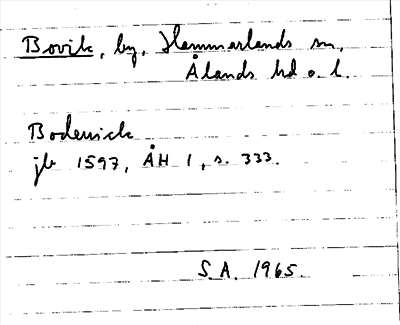 Bovik, by, Hammarlands sn,
Ålands hd o. l.
Bodeuick
jb 1597, ÅH 1, s. 333.
S.A. 1965.